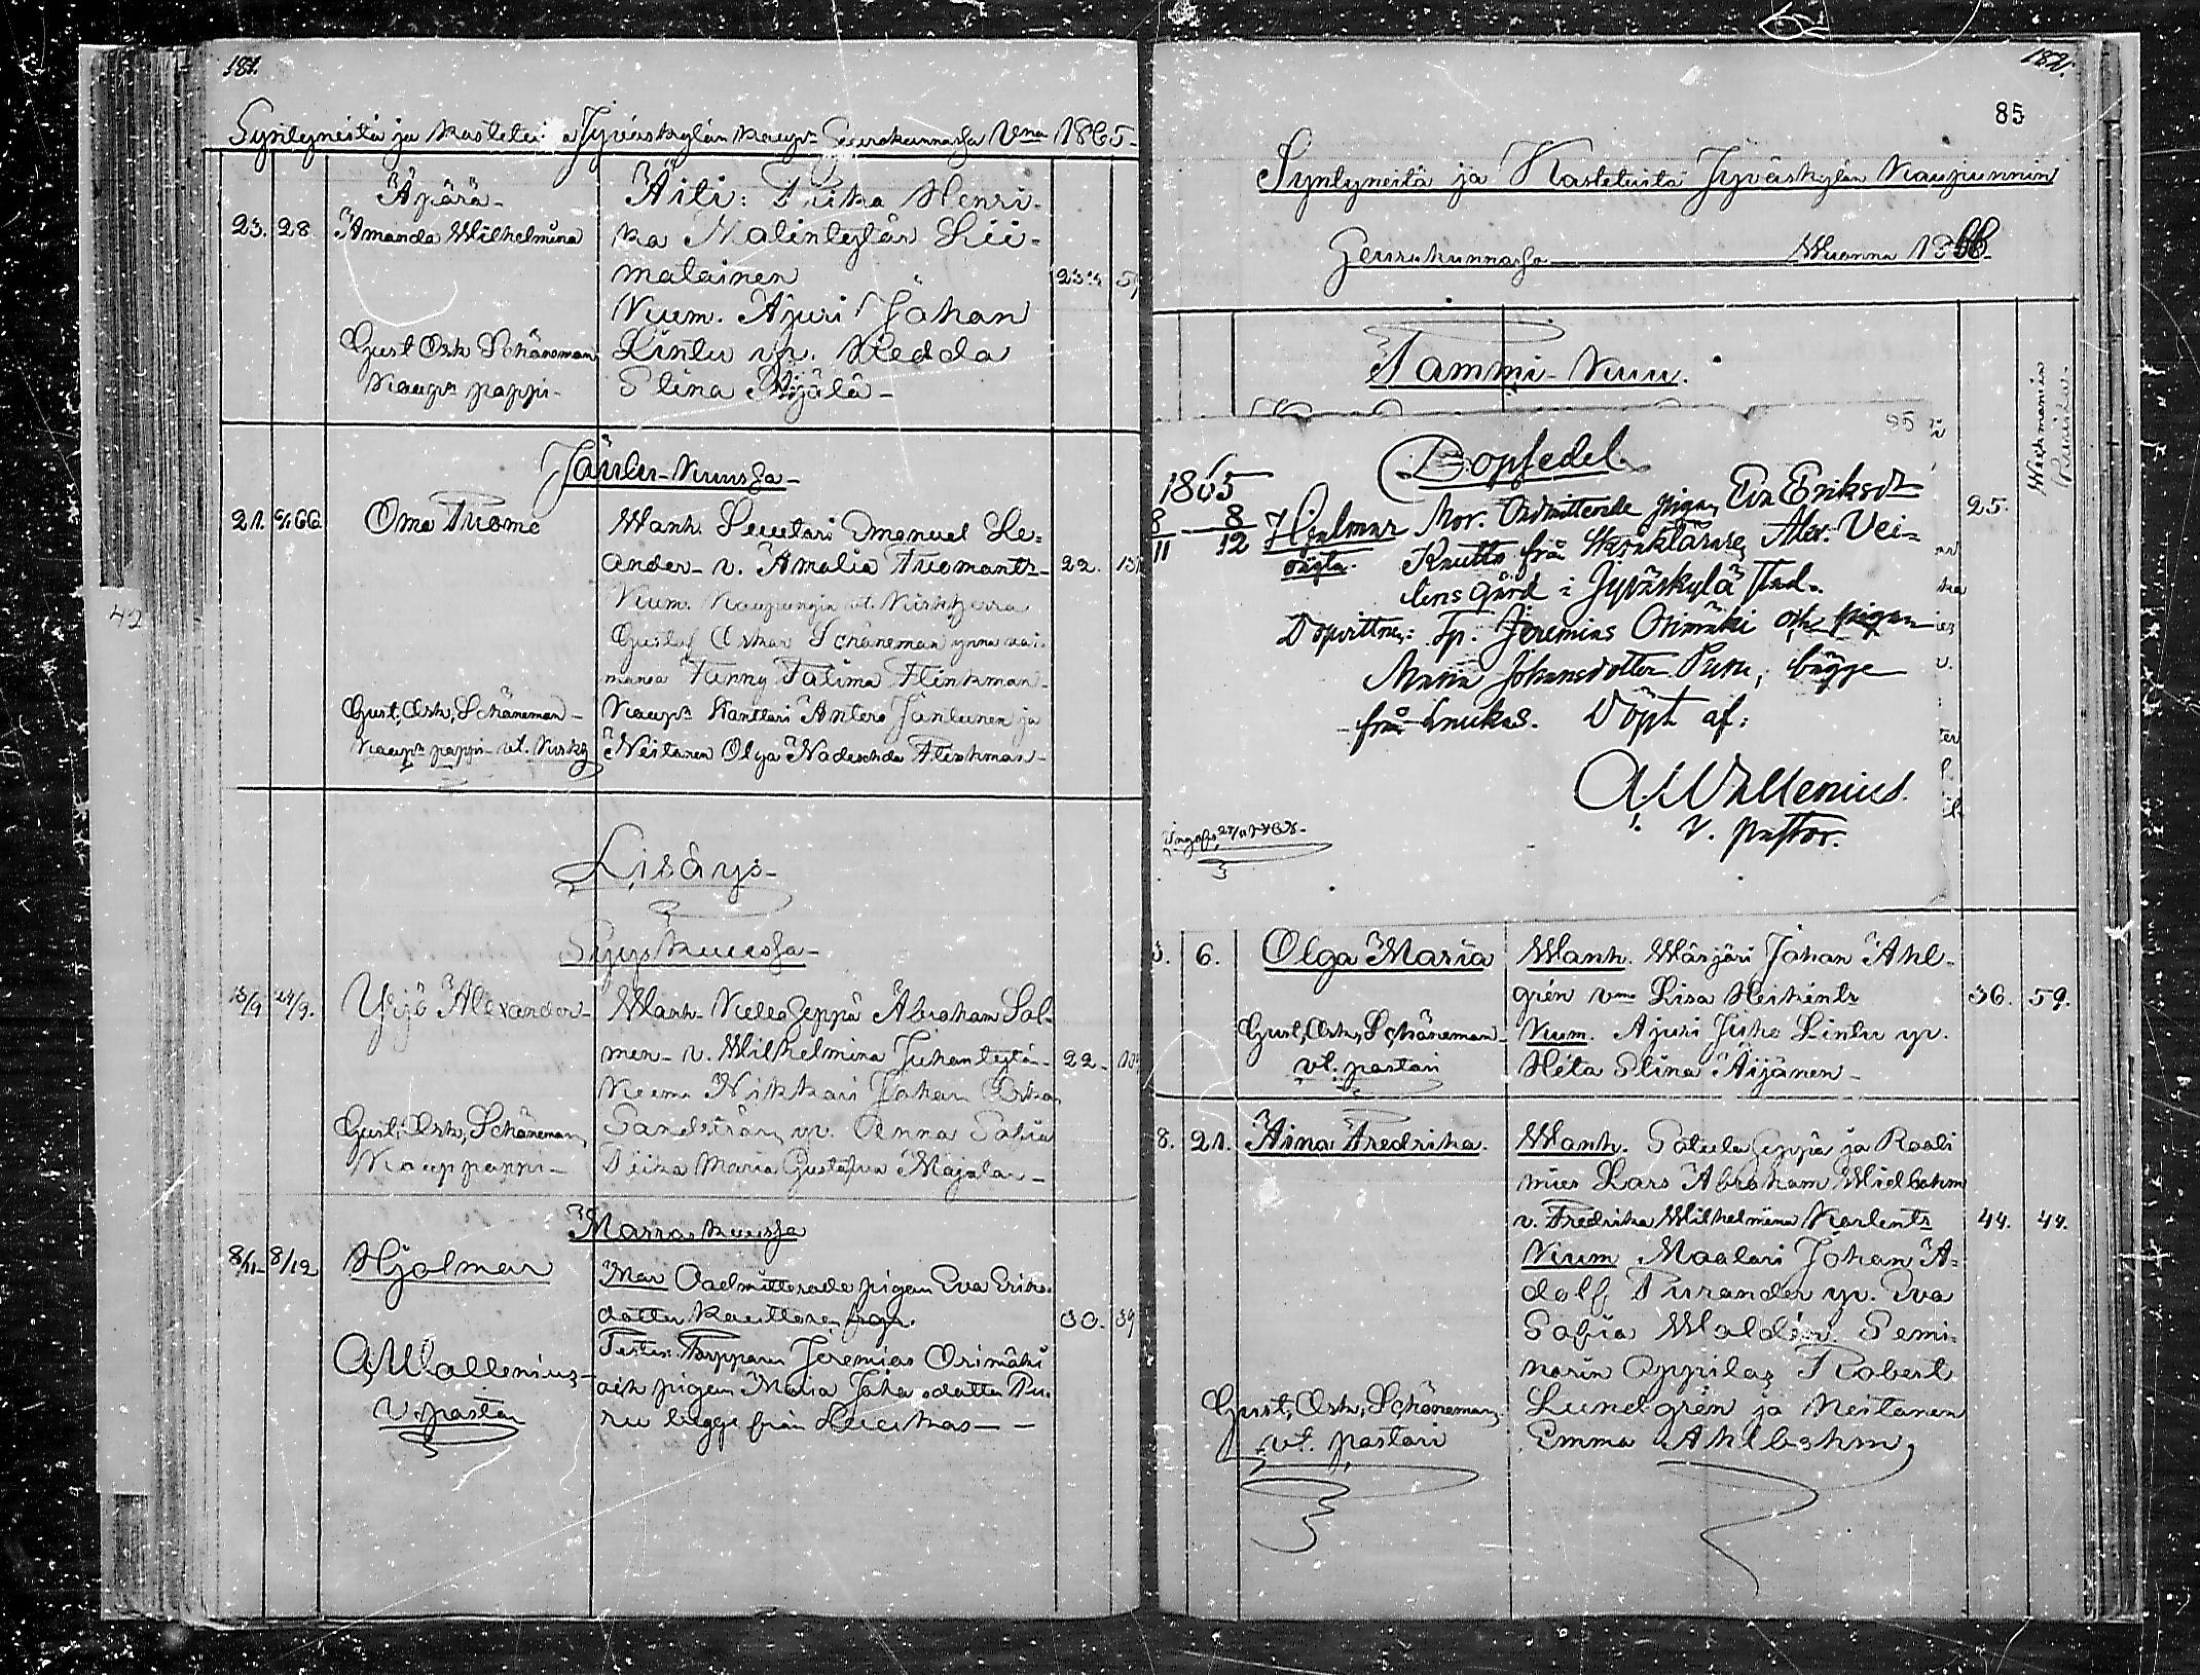 181.
Syntyneitä ja Kastetui a Jyväskylän Kaup:n Seurakunnassa Vna 1865-
Äpärä-
23. 28 Amanda Wilhelmina
Äiti: Frika Henri-
ka Malintytär Lii-
matainen
Kum. Ajuri Johan
Lintu yn. Hedda
Stina Äijälä-
23
Gust Osk Schöneman
Kaup:n pappi-
Joulu-Kuussa-
21. 6/1 66 Oma Tuomo
Wanh. Secretari Emanuel Le-
ander- v. Amalia Tuomantr-
Kum. Kaupungin vt. Kirkherra
Gustaf Oskar Schöneman ynna vai-
monsa Fanny Fatima Flinkman-
Kaup:n Kanttori Antero Jantunen ja
Neitanen Olga Nadeschda Flinkman-
22.
Gust, Osk, Schöneman-
Kaup:n pappi- vt. Kirkh
Lisäys-
Syys Kuussa-
13/9 24/9. Yrjö Alexander-
Wanh- Kello Seppä Abraham Sal-
men- v. Wilhelmina Juhantytär-
Kum Nikkari Johan Oska
Sandström yn. Anna Sofia
Fiika Maria Gustafva Majalan-
22-
Gust, Osk, Schöneman,
Kaup pappi-
Marraskuussa
8/11- 8/12 Hjalmar
Mor Oadmitterade pigan Eva Eriks-
dotter Knuttonen
Testes: Torpparen Jeremias Orimäki
och pigan Maria Joha sdotter Pu-
ru begge från Leuckas- -
30. 39
A, Wallenius-
v. pastor
182.
85
Syntyneitä ja Kastetuita Jyväskylän Kaupunnin
Seurakunnassa Wuonna 1866-
Tammi-Kuu.
25.
Dopsedel
1865
8/11 - 8/12 Hjalmar Mor. Oadmitterade pigan Eva Eriksdr
oägta. Knutto från Skräklärare Alex. Vei-
lens gård i Jyväskylä Stad.
Dopvittnen: Tp. Jeremias Orimäki och pigan
Maria Johansdotter Puru, bägge
från Leukas. Döpt af:
A. Wallenius.
v. pastor.
3. 6. Olga Maria
Wanh. Wärjäri Johan Ahl-
grén vmo Lisa Heikintr
Kum. Ajuri Juho Lintu yn.
Heta Stina Äijänen-
36. 59.
Gust, Osk, Schöneman-
vt. pastori
8. 21. Aina Fredrika.
Wanh. Satula Seppä ja Raati
mies Lars Abraham Widbohm
v. Fredrika Wilhelmina Karlentr
Kum Maalari Johan A-
dolf Turander yn. Eva
Sofia Waldén. Semi-
narin Oppilas Robert
Lundgrén ja Neitanen
Emma Ahlbohm,
44. 44.
Gust, Osk, Schöneman,
vt. pastori